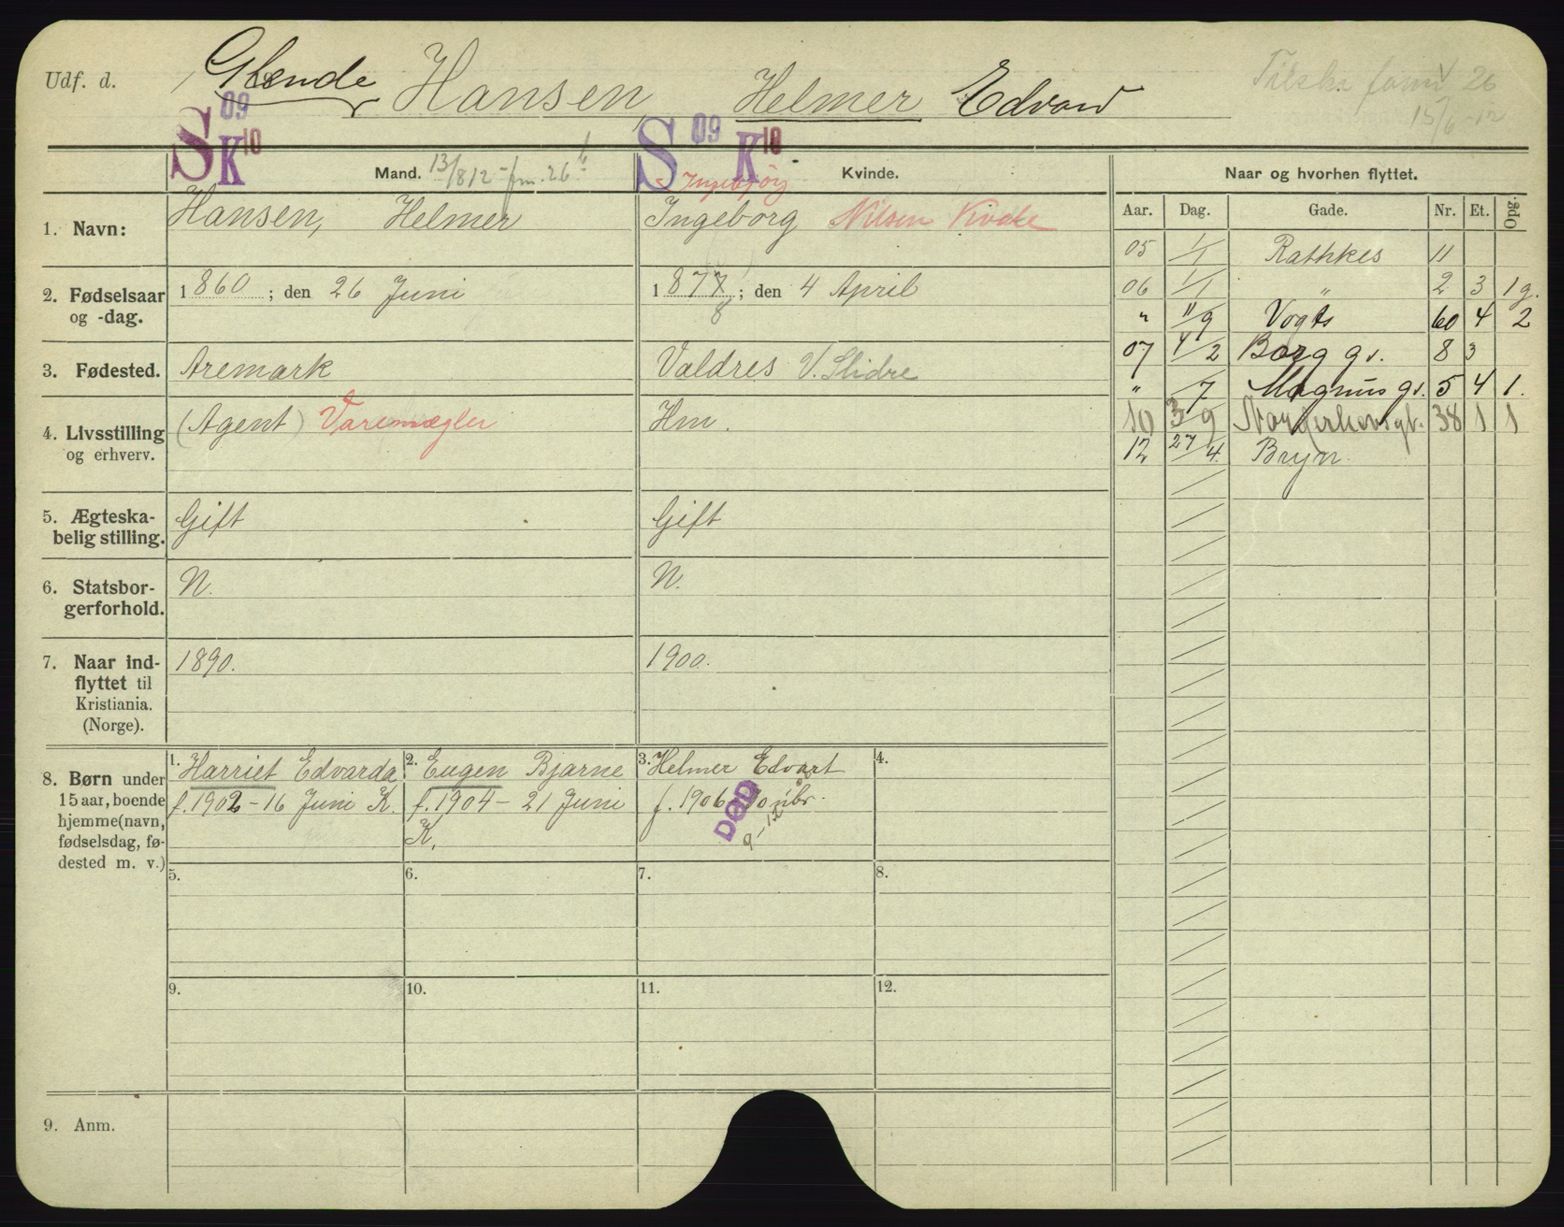 Udf. d. Glende Hansen, Helmer Edvard
26
15/6 -12
S 09 K 10
S 09 K 10
Mand. 13/8 12 Kvinde. Naar og hvorhen flyttet.
Ingebjörg
1. Navn: Hansen, Helmer Ingeborg Nilsen Kvale
Aar. Dag. Gade. Nr. Et. Opg.
05 1/1 Rathkes 11
06 1/1 " 2 3 1g.
" 11/9 Vogts 60 4 2
07 4/2 Borg gd. 8 3
" /7 Magnus gd. 5 4 1.
10 3/9 Norderhovsgt. 38 1 1
12 27/4. Bryn.
2. Fødselsaar og -dag. 1860; den 26 Juni 1877; den 4 April
8
3. Fødested. Aremark Valdres V. Slidre
4. Livsstilling og erhverv. (Agent) Varemægler Hm.
5. Ægteska-
belig stilling. Gift Gift
6. Statsbor-
gerforhold. N. N.
7. Naar ind-
flyttet til
Kristiania.
(Norge). 1890. 1900.
8. Børn under
15 aar, boende
hjemme (navn,
fødselsdag, fø-
dested m. v.)
1. Harriet Edvarda
f. 1902 - 16 Juni K.
2. Eugen Bjarne
f. 1904 - 21 Juni
K.
3. Helmer Edvart
f. 1906
DØD
4.
5. 6. 7. 8.
9. 10. 11. 12.
9. Anm.